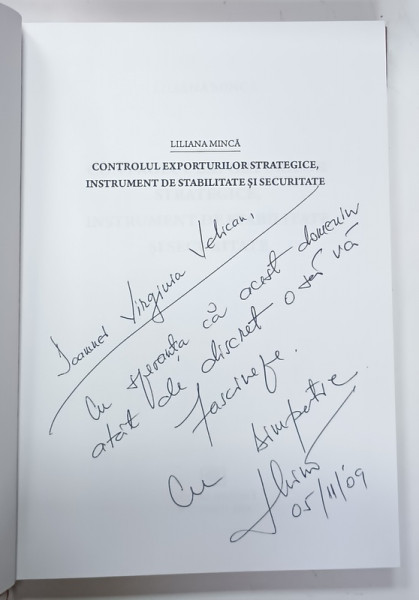 LILIANA MINCĂ
CONTROLUL EXPORTURILOR STRATEGICE,
INSTRUMENT DE STABILITATE ȘI SECURITATE
Doamnei Virginia Velican,
Cu speranța că acest domeniu
atât de discret o să vă
fascineze.
Cu simpatie
05/11/'09